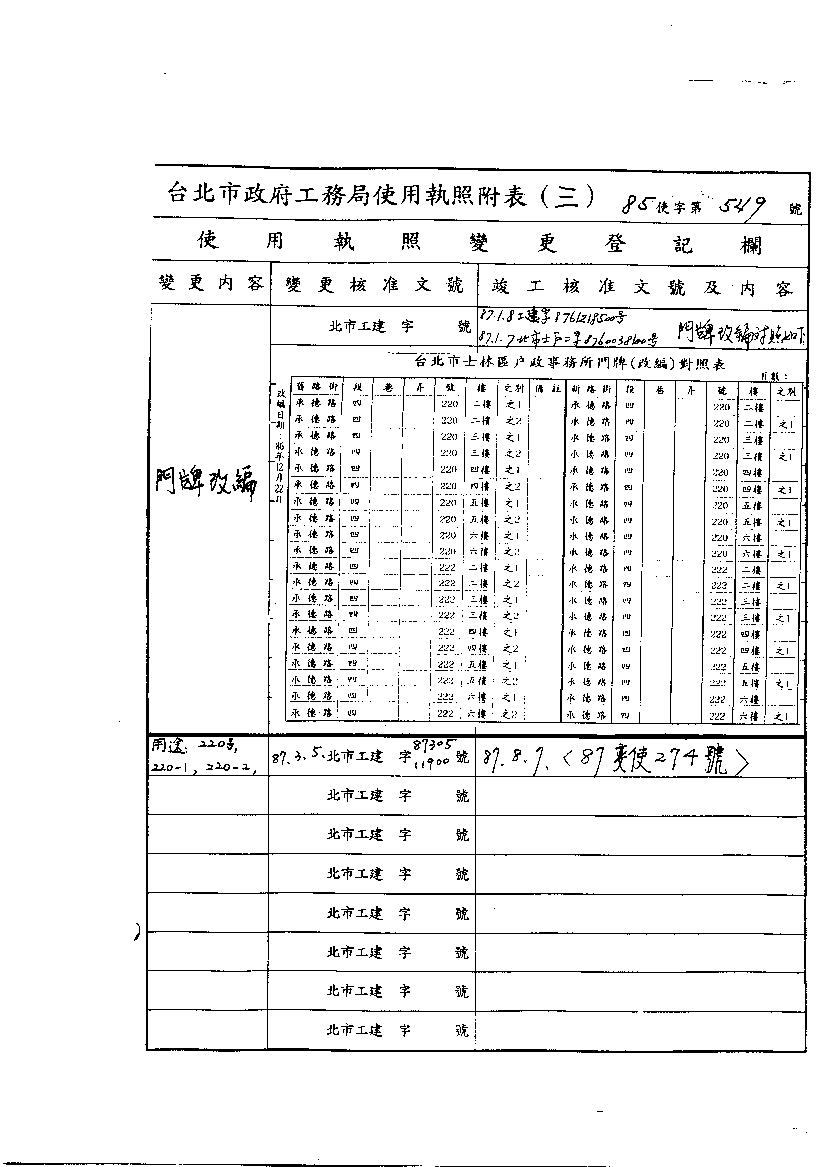 台北市政府工務局使用執照附表(三) 85使字第 549 號
使用執照變更登記欄
變更內容 變更核准文號 竣工核准文號及內容
門牌改編 北市工建 字 號
87.1.8工建字8761218500号
87.1.7北市士戶二字8760038600号 門牌改編对照如下
台北市士林區戶政事務所門牌(改編)對照表
頁數:
改編日期:86年12月22日
舊路街 段 巷 弄 號 樓 之別 備註 新路街 段 巷 弄 號 樓 之別
承德路 四 220 二樓 之1 承德路 四 220 二樓
承德路 四 220 二樓 之2 承德路 四 220 二樓 之1
承德路 四 220 三樓 之1 承德路 四 220 三樓
承德路 四 220 三樓 之2 承德路 四 220 三樓 之1
承德路 四 220 四樓 之1 承德路 四 220 四樓
承德路 四 220 四樓 之2 承德路 四 220 四樓 之1
承德路 四 220 五樓 之1 承德路 四 220 五樓
承德路 四 220 五樓 之2 承德路 四 220 五樓 之1
承德路 四 220 六樓 之1 承德路 四 220 六樓
承德路 四 220 六樓 之2 承德路 四 220 六樓 之1
承德路 四 222 二樓 之1 承德路 四 222 二樓
承德路 四 222 二樓 之2 承德路 四 222 二樓 之1
承德路 四 222 三樓 之1 承德路 四 222 三樓
承德路 四 222 三樓 之2 承德路 四 222 三樓 之1
承德路 四 222 四樓 之1 承德路 四 222 四樓
承德路 四 222 四樓 之2 承德路 四 222 四樓 之1
承德路 四 222 五樓 之1 承德路 四 222 五樓
承德路 四 222 五樓 之2 承德路 四 222 五樓 之1
承德路 四 222 六樓 之1 承德路 四 222 六樓
承德路 四 222 六樓 之2 承德路 四 222 六樓 之1
用途:220号,
220-1, 220-2,
87.3.5.北市工建 字 8730511900 號 87.8.7.〈87變使274號〉
北市工建 字 號
北市工建 字 號
北市工建 字 號
北市工建 字 號
北市工建 字 號
北市工建 字 號
北市工建 字 號